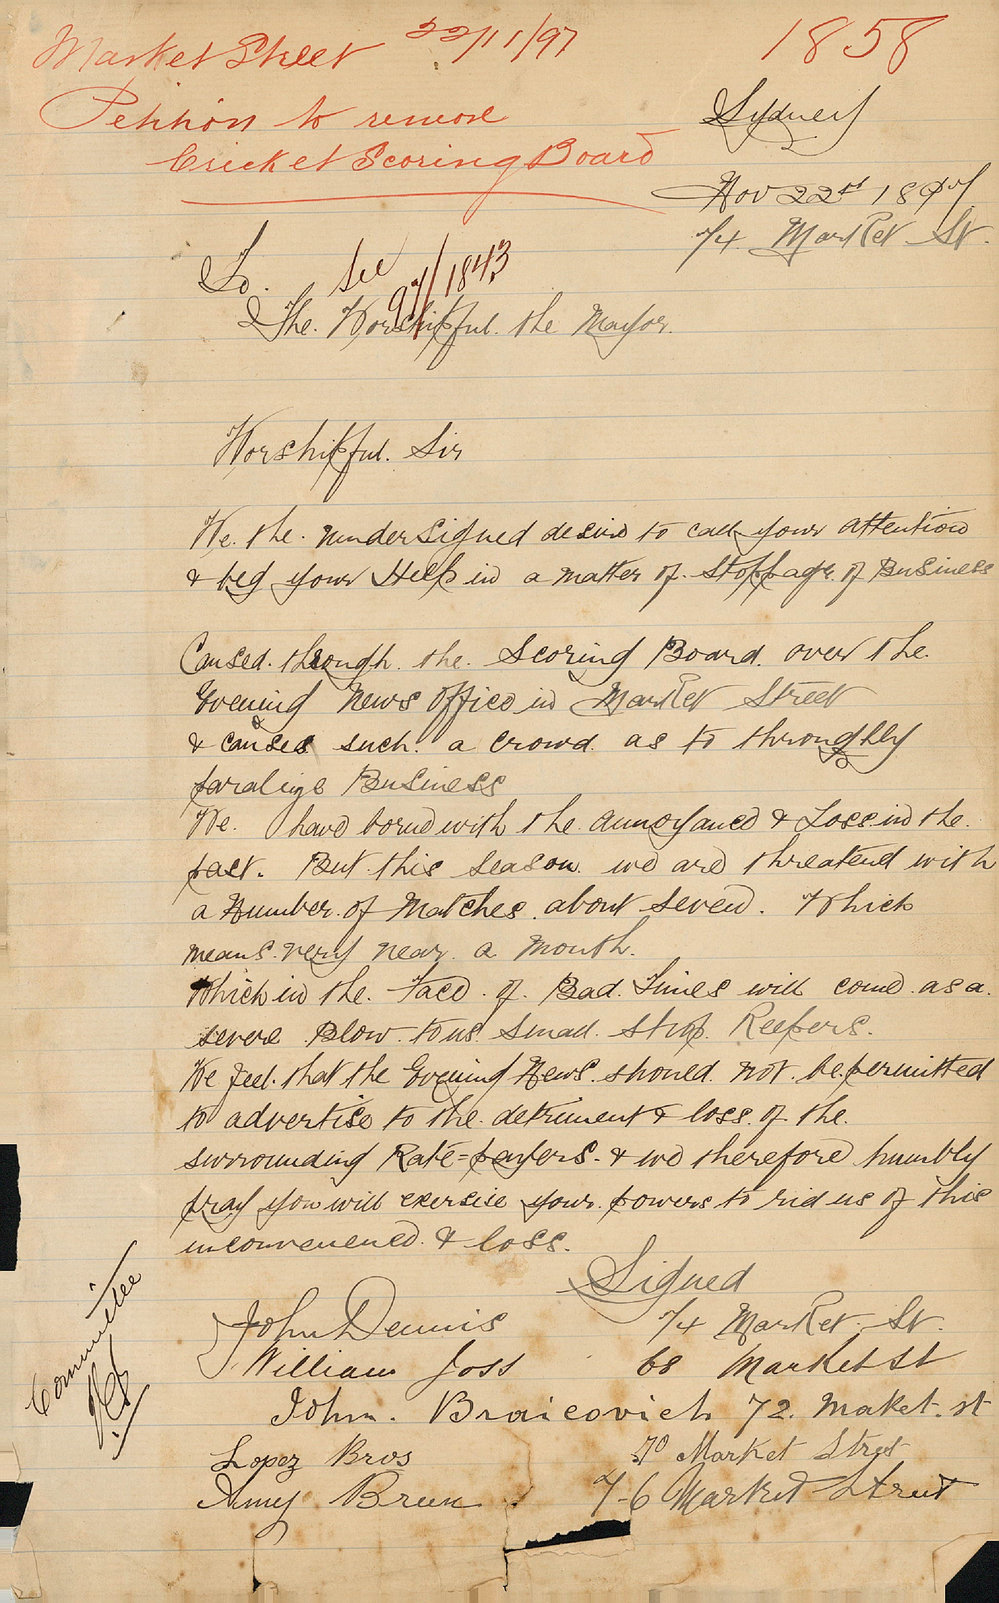 Market Street 22/11/97 1858
Petition to remove
Cricket Scoring Board
Sydney
Nov 22nd 1897
74 Market St.
To. See 97/1843
The. Worshipful. the Mayor.
Worshipful. Sir
We. the. undersigned desire to call your attention
& beg your Help in a matter of. Stoppage. of Business
Caused. through. the. Scoring Board. over the.
Evening News office in Market Street
& causes such. a crowd. as to throughly
paralize Business
We. have borne with the. annoyance & Loss in the.
past. But this season we are threatend with
a Number. of Matches. about seven. Which
means. very near. a month.
Which in the. Face. of. Bad. Times will come. as a.
severe Blow. to us. Small. Shop. Keepers.
We feel. that the Evening News. should. not. be permitted
to advertise to the. detriment & loss. of. the.
surrounding Rate=payers. & we therefore humbly
pray you will exercise your. powers to rid us of this
inconvenence. & loss.
Signed
John Dennis 74 Market. St.
William Joss 68 Market St
John. Braicovich 72. Maket. st
Lopez Bros 70 Market Street
Amy Breen 76 Market Street
Committee